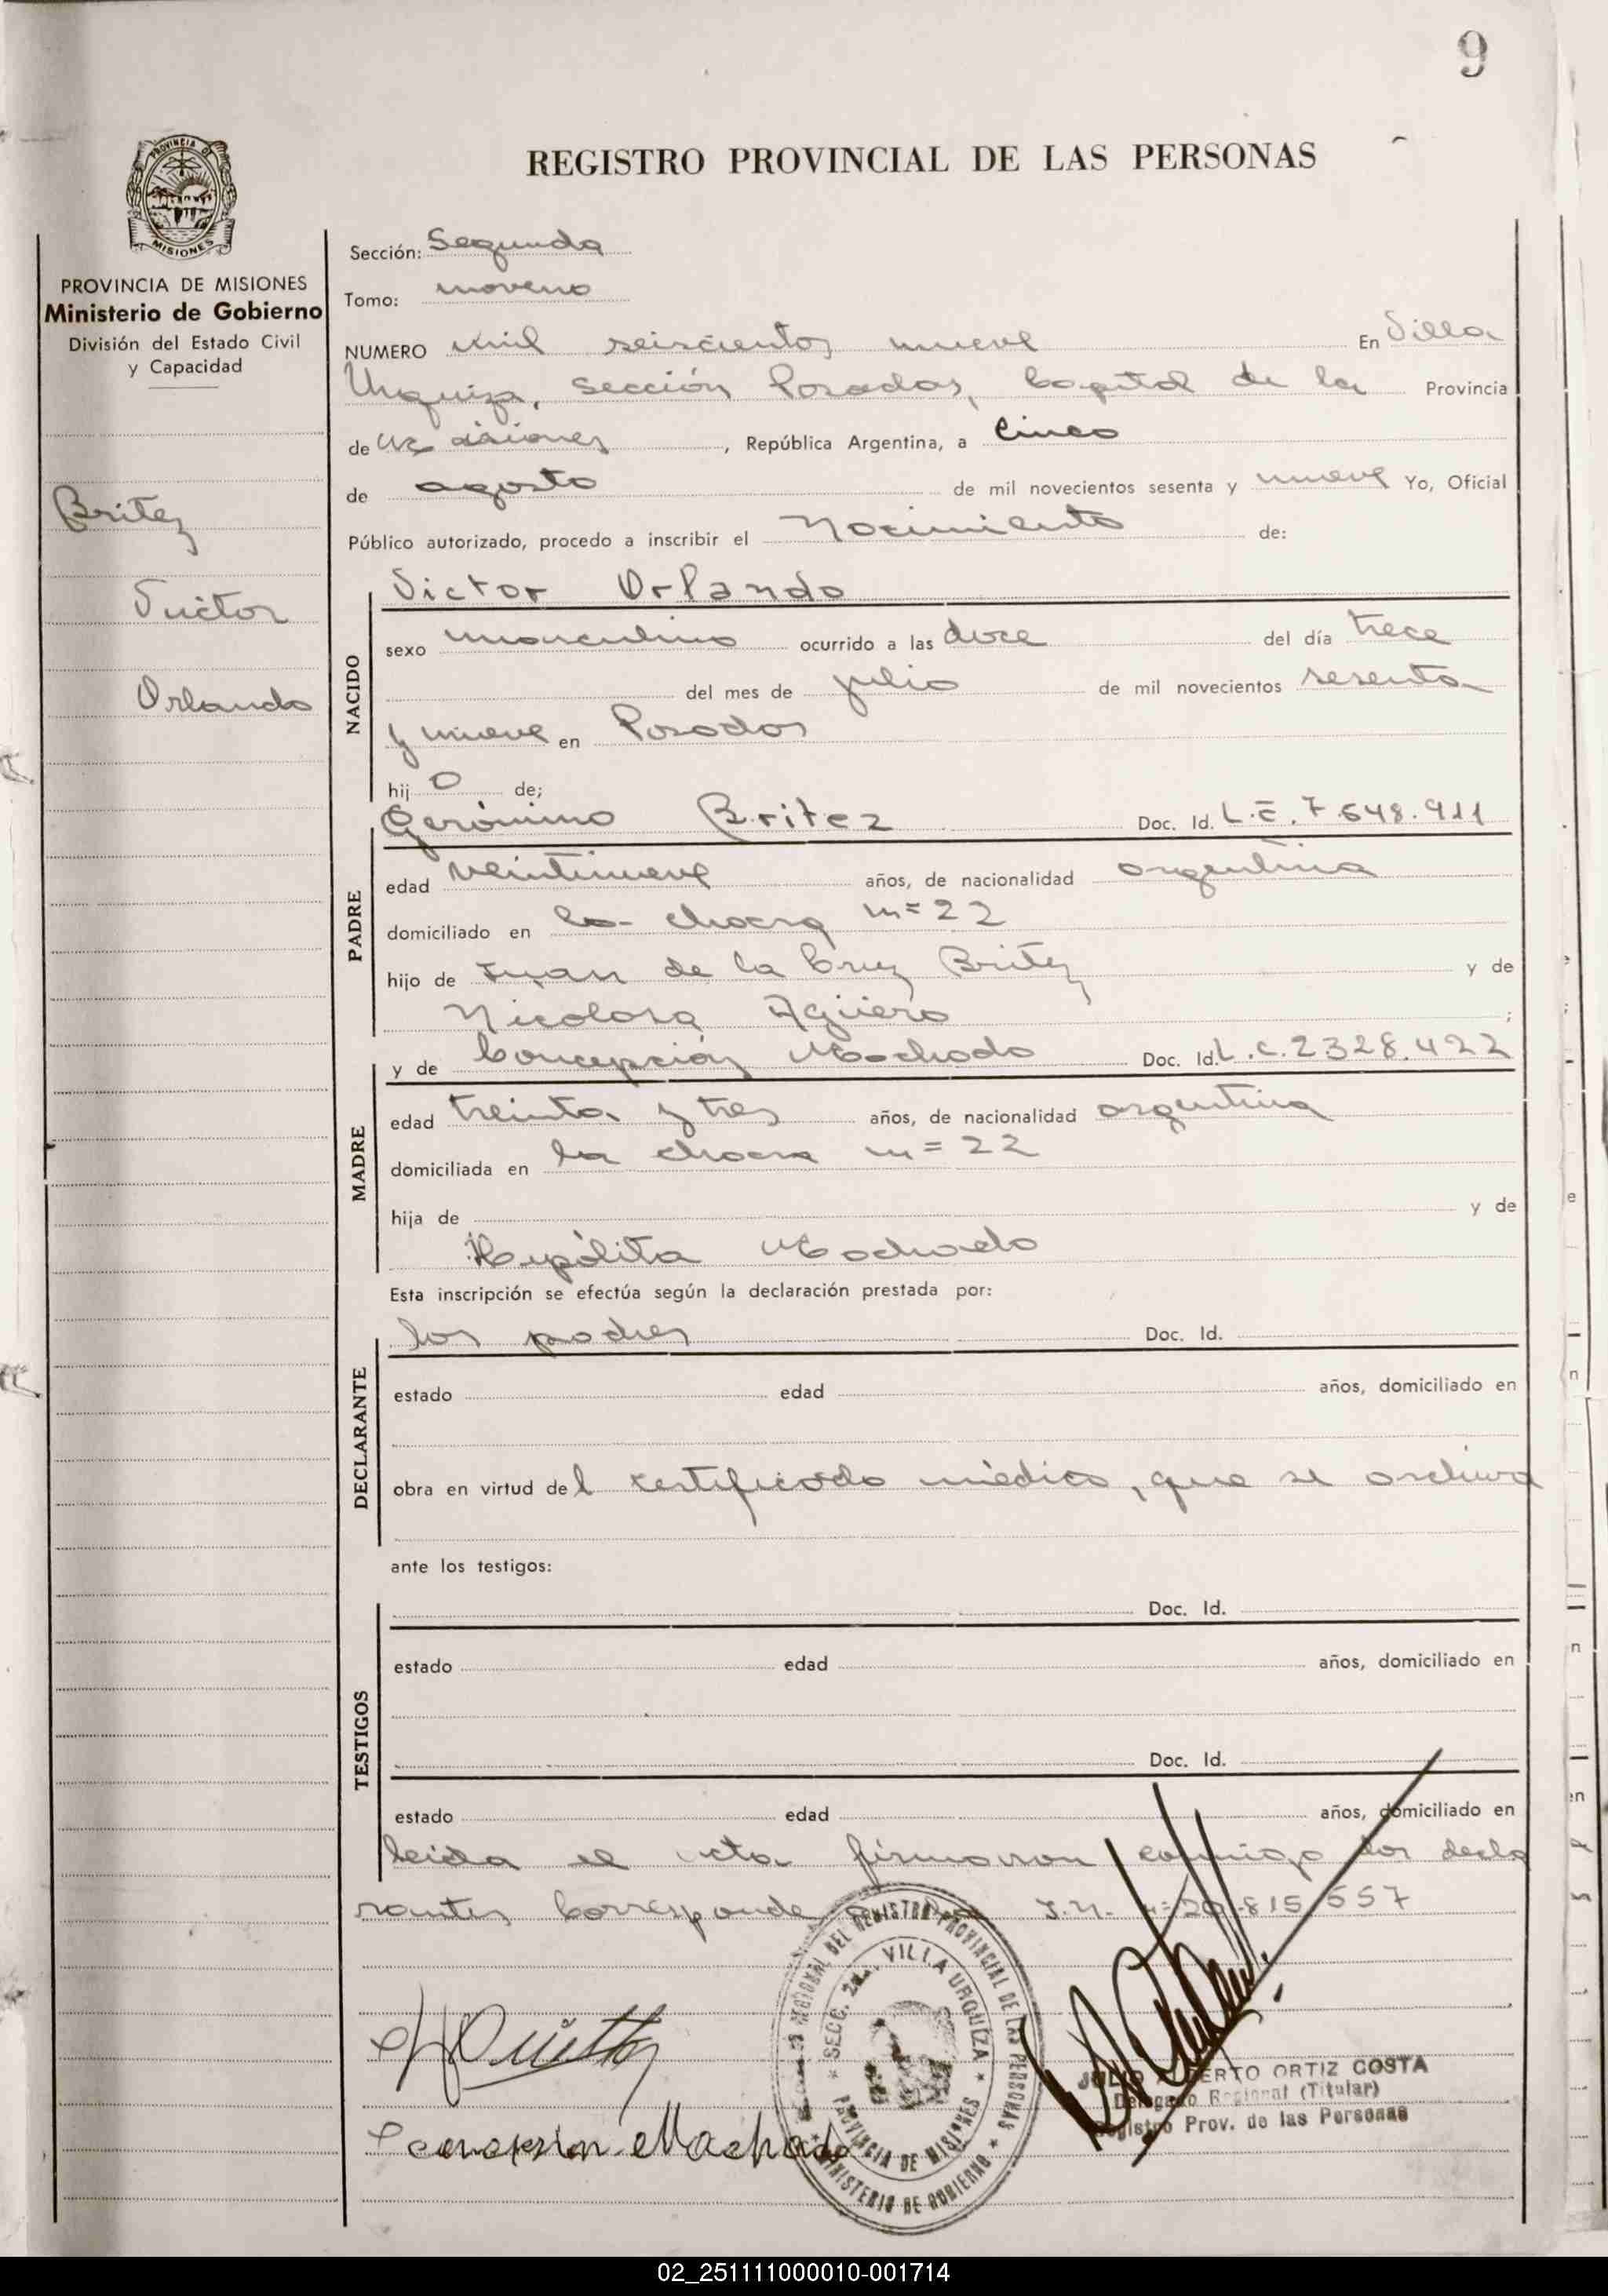 9
REGISTRO PROVINCIAL DE LAS PERSONAS
PROVINCIA DE MISIONES
PROVINCIA DE MISIONES
Ministerio de Gobierno
División del Estado Civil
y Capacidad
Britez
Victor
Orlando
Sección: Segunda
Tomo: noveno
NUMERO mil seiscientos nueve En Villa
Urquiza, Sección Posadas, Capital de la Provincia
de Misiones, República Argentina, a cinco
de agosto de mil novecientos sesenta y nueve Yo, Oficial
Público autorizado, procedo a inscribir el Nacimiento de:
NACIDO
Victor Orlando
sexo masculino ocurrido a las doce del día trece
del mes de julio de mil novecientos sesenta
y nueve en Posadas
hij o de;
PADRE
Gerónimo Britez Doc. Id. L.E. 7.648.911
edad veintinueve años, de nacionalidad argentina
domiciliado en la chacra n= 22
hijo de Juan de la Cruz Britez y de
Nicolasa Agüero ;
MADRE
y de Concepción Machado Doc. Id. L.C. 2328.422
edad treinta y tres años, de nacionalidad argentina
domiciliada en la chacra n= 22
hija de y de
Hipólita Machado
Esta inscripción se efectúa según la declaración prestada por:
DECLARANTE
los padres Doc. Id.
estado edad años, domiciliado en
obra en virtud del certificado médico, que se archiva
ante los testigos:
TESTIGOS
Doc. Id.
estado edad años, domiciliado en
Doc. Id.
estado edad años, domiciliado en
leida el acta firmaron conmigo los decla
rantes Corresponde I.N. n= 20.815.557
REGIONAL DEL REGISTRO PROVINCIAL DE LAS PERSONAS
SECC. 2a. VILLA URQUIZA
PROVINCIA DE MISIONES
MINISTERIO DE GOBIERNO
JULIO ALBERTO ORTIZ COSTA
Delegado Regional (Titular)
Registro Prov. de las Personas
Concepsion Machado
02_251111000010-001714